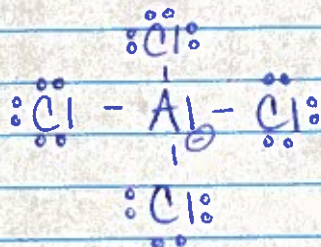 Cl
Cl - Al - Cl
⊖
Cl